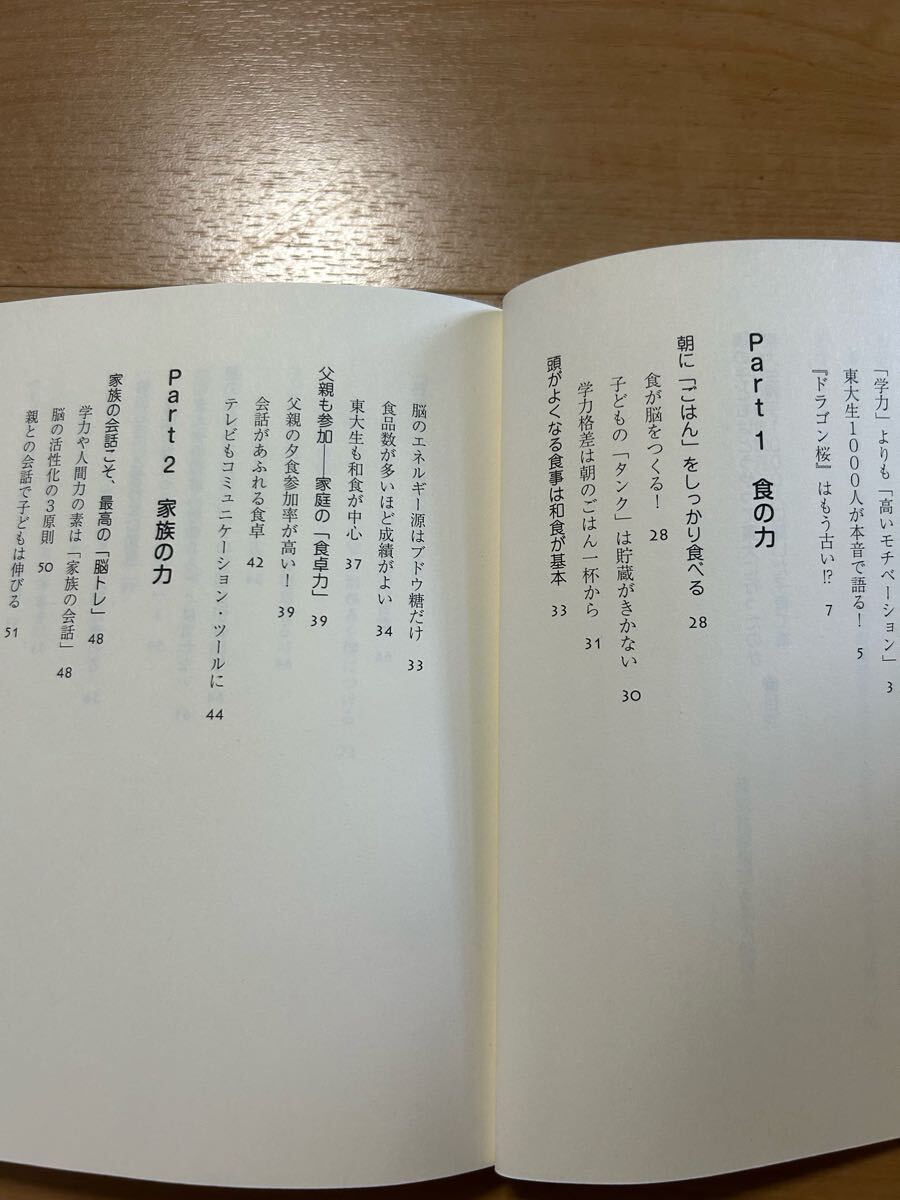 「学力」よりも「高いモチベーション」 3
東大生1000人が本音で語る！ 5
『ドラゴン桜』はもう古い!? 7
Part 1 食の力
朝に「ごはん」をしっかり食べる 28
食が脳をつくる！ 28
子どもの「タンク」は貯蔵がきかない 30
学力格差は朝のごはん一杯から 31
頭がよくなる食事は和食が基本 33
脳のエネルギー源はブドウ糖だけ 33
食品数が多いほど成績がよい 34
東大生も和食が中心 37
父親も参加――家庭の「食卓力」 39
父親の夕食参加率が高い！ 39
会話があふれる食卓 42
テレビもコミュニケーション・ツールに 44
Part 2 家族の力
家族の会話こそ、最高の「脳トレ」 48
学力や人間力の素は「家族の会話」 48
脳の活性化の3原則 50
親との会話で子どもは伸びる 51